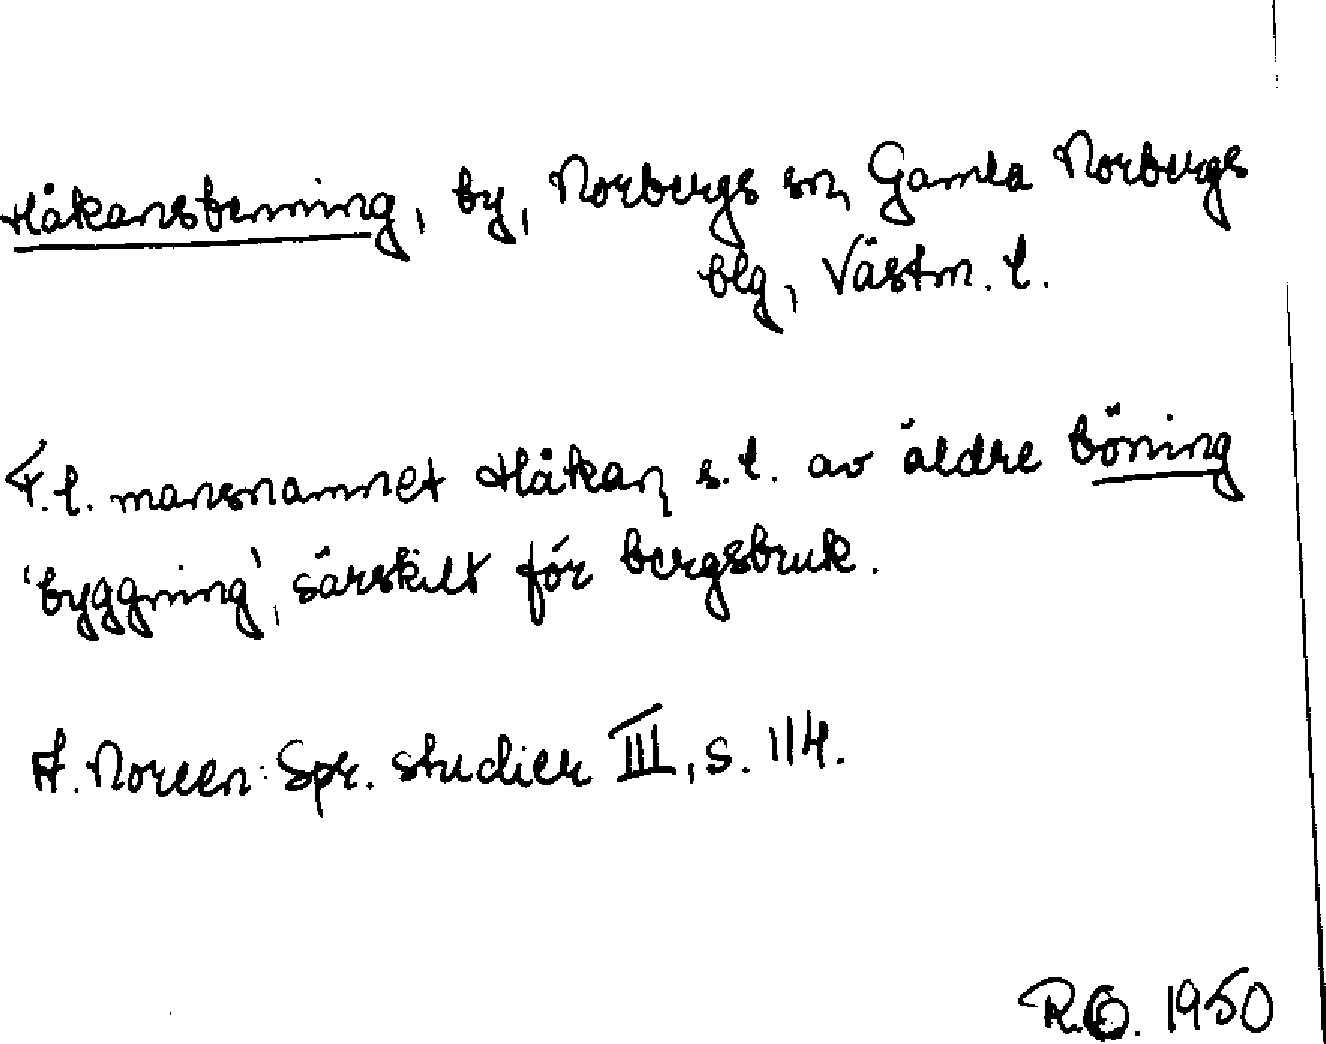 Håkansbenning, by, Norbergs sn, Gamla Norbergs
blg, Västm. l.
F.l. mansnamnet Håkan, s.l. av äldre böning
'byggning', särskilt för bergsbruk.
A. Noreen: Spr. studier III, s. 114.
R.O. 1950